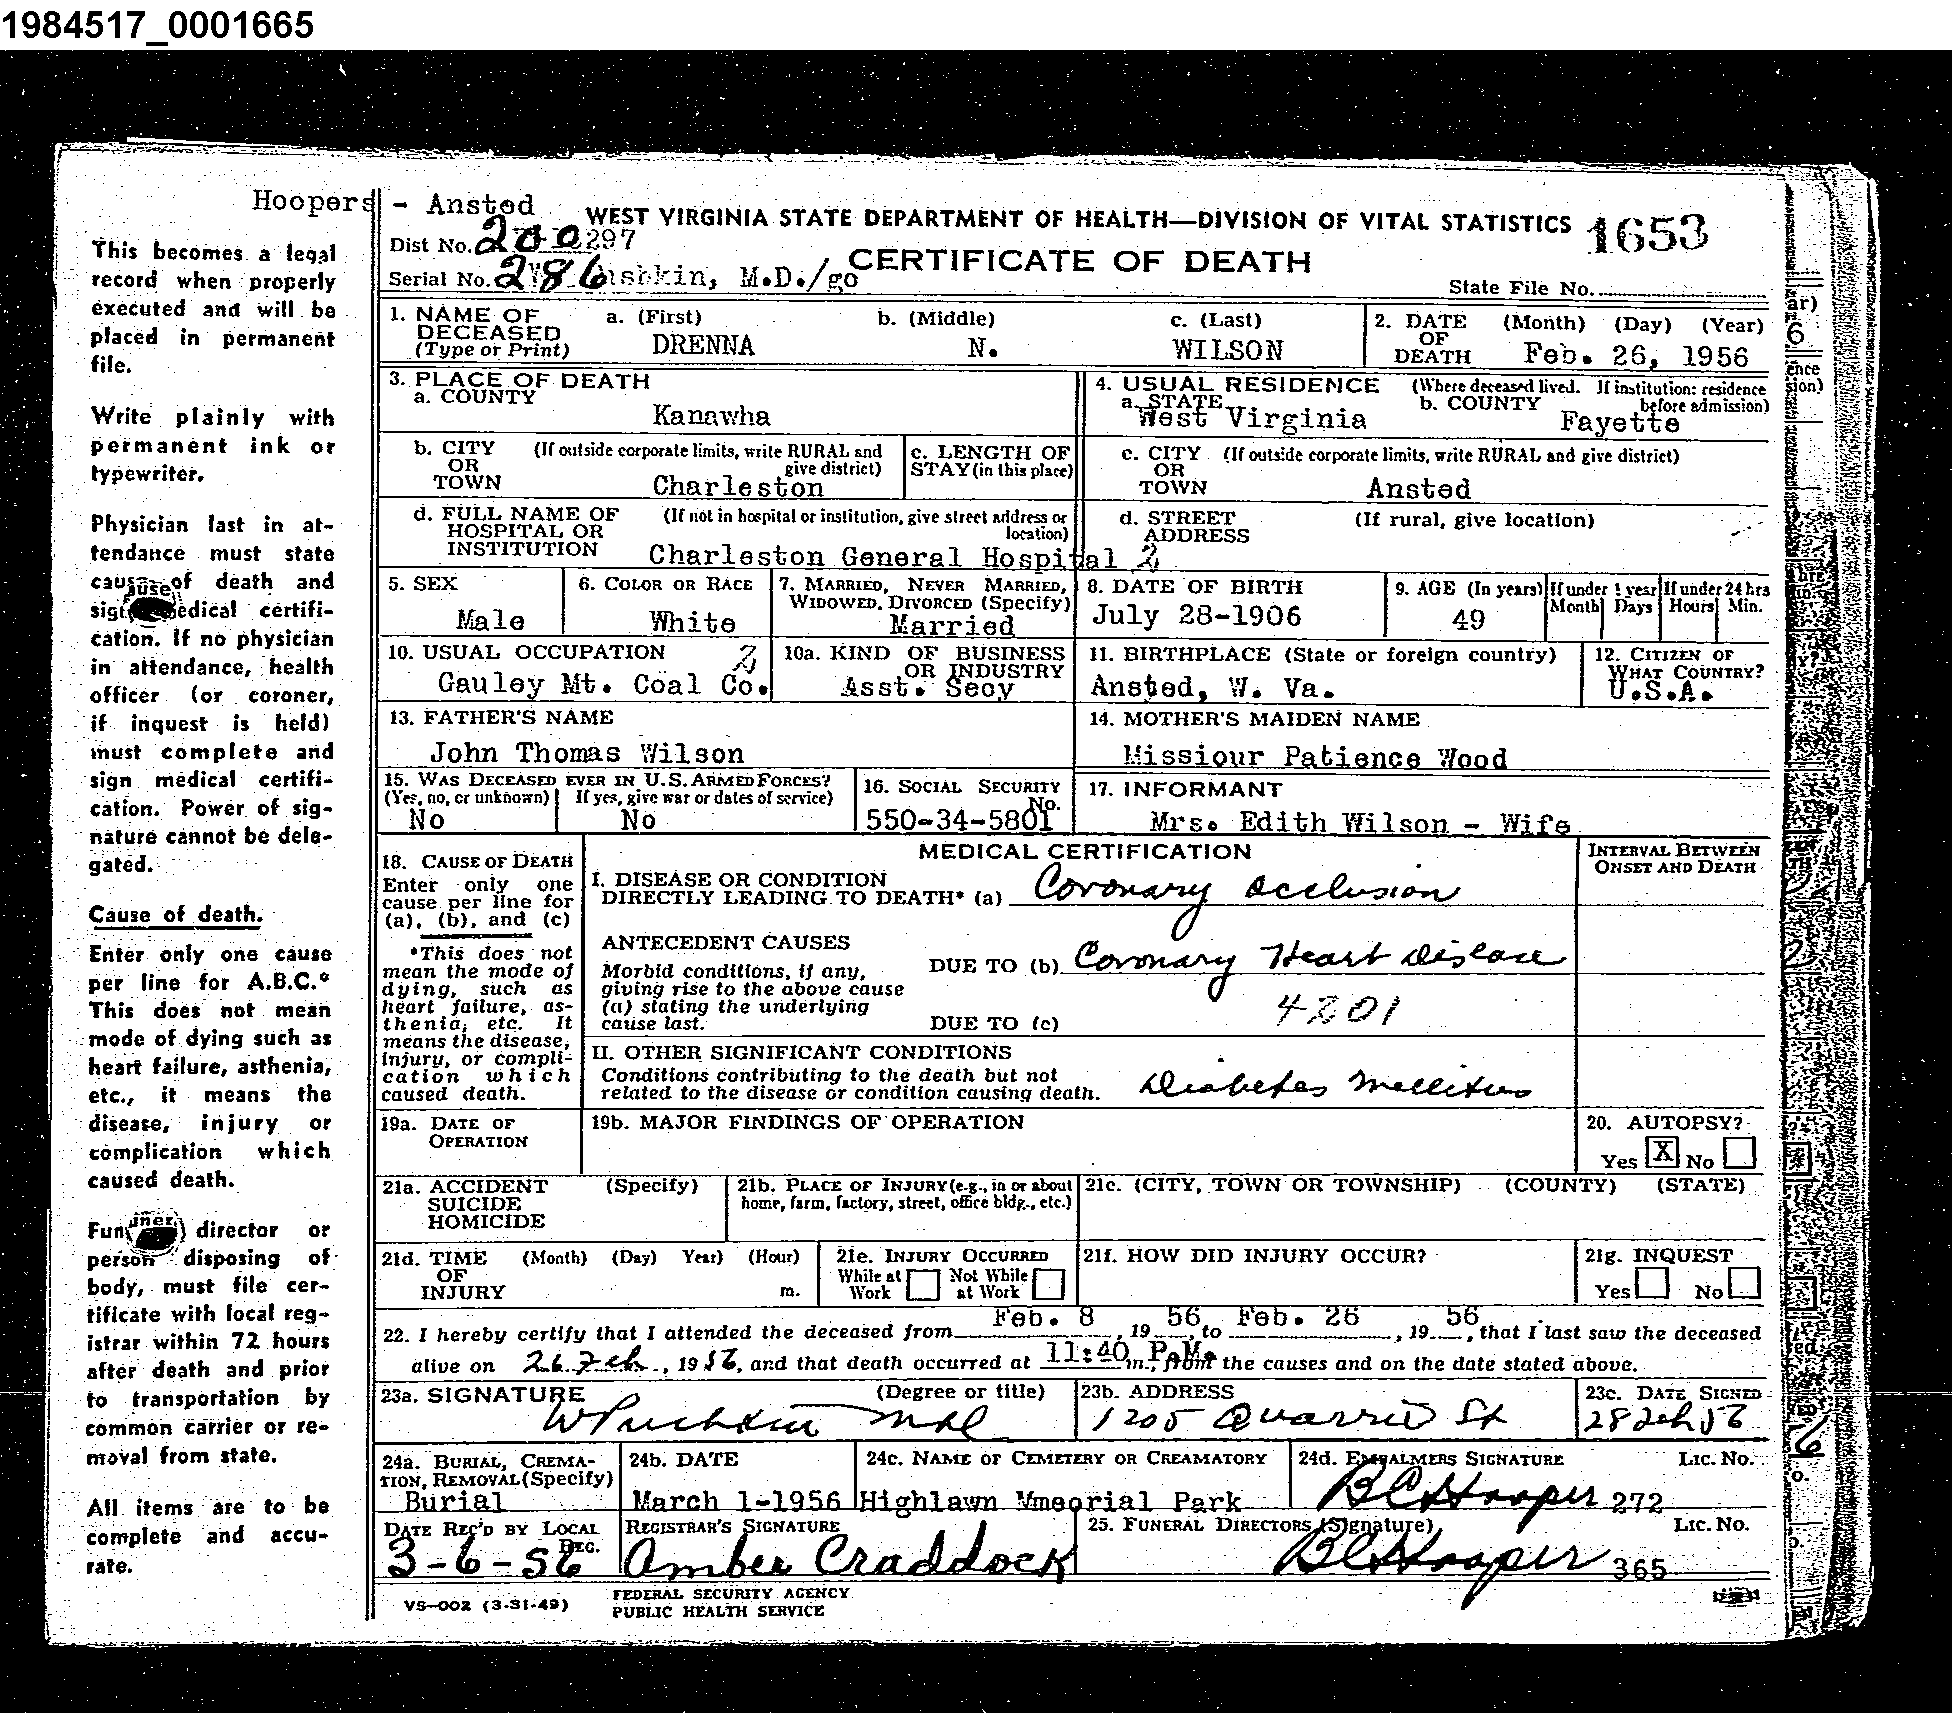 1984517_0001665
Hoopers - Ansted
WEST VIRGINIA STATE DEPARTMENT OF HEALTH—DIVISION OF VITAL STATISTICS 1653
Dist No. 200 297
CERTIFICATE OF DEATH
Serial No. 286 M.D./go
State File No.
1. NAME OF DECEASED (Type or Print)
a. (First) DRENNA
b. (Middle) N.
c. (Last) WILSON
2. DATE OF DEATH (Month) (Day) (Year)
Feb. 26, 1956
3. PLACE OF DEATH
a. COUNTY
Kanawha
4. USUAL RESIDENCE (Where deceased lived. If institution: residence before admission)
a. STATE West Virginia
b. COUNTY Fayette
b. CITY OR TOWN (If outside corporate limits, write RURAL and give district)
Charleston
c. LENGTH OF STAY (in this place)
c. CITY OR TOWN (If outside corporate limits, write RURAL and give district)
Ansted
d. FULL NAME OF HOSPITAL OR INSTITUTION (If not in hospital or institution, give street address or location)
Charleston General Hospital 2
d. STREET ADDRESS (If rural, give location)
5. SEX
Male
6. COLOR OR RACE
White
7. MARRIED, NEVER MARRIED, WIDOWED, DIVORCED (Specify)
Married
8. DATE OF BIRTH
July 28-1906
9. AGE (In years)
49
If under 1 year Month Days
If under 24 hrs Hours Min.
10. USUAL OCCUPATION 2
Gauley Mt. Coal Co.
10a. KIND OF BUSINESS OR INDUSTRY
Asst. Secy
11. BIRTHPLACE (State or foreign country)
Ansted, W. Va.
12. CITIZEN OF WHAT COUNTRY?
U.S.A.
13. FATHER'S NAME
John Thomas Wilson
14. MOTHER'S MAIDEN NAME
Missiour Patience Wood
15. WAS DECEASED EVER IN U.S. ARMED FORCES?
(Yes, no, or unknown) If yes, give war or dates of service)
No No
16. SOCIAL SECURITY No.
550-34-5801
17. INFORMANT
Mrs. Edith Wilson - Wife
18. CAUSE OF DEATH
Enter only one
cause per line for
(a), (b), and (c)
*This does not
mean the mode of
dying, such as
heart failure, as-
thenia, etc. It
means the disease,
injury, or compli-
cation which
caused death.
MEDICAL CERTIFICATION
INTERVAL BETWEEN ONSET AND DEATH
I. DISEASE OR CONDITION
DIRECTLY LEADING TO DEATH* (a) Coronary occlusion
ANTECEDENT CAUSES
Morbid conditions, if any,
giving rise to the above cause
(a) stating the underlying
cause last.
DUE TO (b) Coronary Heart Disease
4201
DUE TO (c)
II. OTHER SIGNIFICANT CONDITIONS
Conditions contributing to the death but not
related to the disease or condition causing death.
Diabetes mellitus
19a. DATE OF OPERATION
19b. MAJOR FINDINGS OF OPERATION
20. AUTOPSY?
Yes X No
21a. ACCIDENT SUICIDE HOMICIDE (Specify)
21b. PLACE OF INJURY (e.g., in or about home, farm, factory, street, office bldg., etc.)
21c. (CITY, TOWN OR TOWNSHIP) (COUNTY) (STATE)
21d. TIME OF INJURY (Month) (Day) Year) (Hour) m.
21e. INJURY OCCURRED
While at Work Not While at Work
21f. HOW DID INJURY OCCUR?
21g. INQUEST
Yes No
22. I hereby certify that I attended the deceased from Feb. 8, 19 56, to Feb. 26, 19 56, that I last saw the deceased
alive on 26 Feb, 1956, and that death occurred at 11:40 P.M. m., from the causes and on the date stated above.
23a. SIGNATURE (Degree or title)
W Pushkin MD
23b. ADDRESS
1205 Quarrier St
23c. DATE SIGNED
28 Feb 56
24a. BURIAL, CREMATION, REMOVAL (Specify)
Burial
24b. DATE
March 1-1956
24c. NAME OF CEMETERY OR CREAMATORY
Highlawn Mmeorial Park
24d. EMBALMERS SIGNATURE LIC. NO.
BC Hooper 272
DATE REC'D BY LOCAL REG.
3-6-56
REGISTRAR'S SIGNATURE
Amber Craddock
25. FUNERAL DIRECTORS (Signature) LIC. NO.
BC Hooper 365
VS-002 (3-31-49)
FEDERAL SECURITY AGENCY
PUBLIC HEALTH SERVICE
This becomes a legal
record when properly
executed and will be
placed in permanent
file.
Write plainly with
permanent ink or
typewriter.
Physician last in at-
tendance must state
cause of death and
sign medical certifi-
cation. If no physician
in attendance, health
officer (or coroner,
if inquest is held)
must complete and
sign medical certifi-
cation. Power of sig-
nature cannot be dele-
gated.
Cause of death.
Enter only one cause
per line for A.B.C.*
This does not mean
mode of dying such as
heart failure, asthenia,
etc., it means the
disease, injury or
complication which
caused death.
Funeral director or
person disposing of
body, must file cer-
tificate with local reg-
istrar within 72 hours
after death and prior
to transportation by
common carrier or re-
moval from state.
All items are to be
complete and accu-
rate.